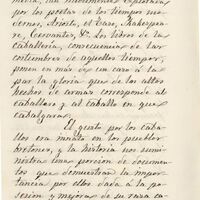 por los poetas de los tiempos mo-
dernos, Ariosto, el Taso, Shakespea-
re, Cervantes, &a. Los libros de la
Caballeria, consecuencia de las
costumbres de aquellos tiempos,
ponen en más de un caso á la
par la gloria que de los altos
hechos de armas corresponde al
caballero y al caballo en que
cabalgara.
El gusto por los caba-
llos era innato en los pueblos
bretones, y la historia nos sumi-
nistra una porcion de documen-
tos que demuestran la impor-
tancia por ellos dada á la po-
sesion y mejora de su raza ca-